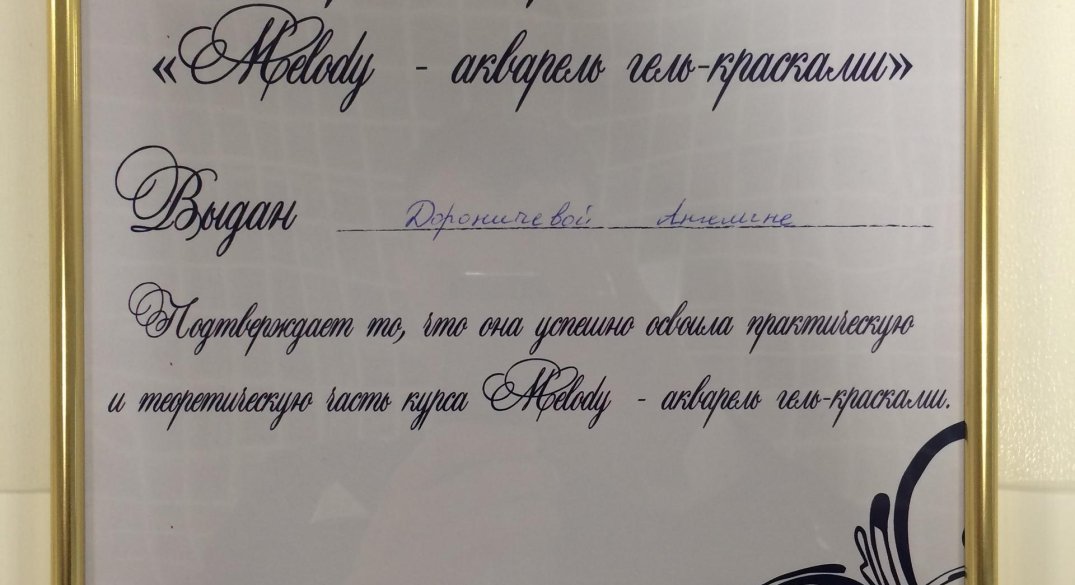 «Melody - акварель гель-красками»
Выдан Дороничевой Ангелине
Подтверждает то, что она успешно освоила практическую
и теоретическую часть курса Melody - акварель гель-красками.